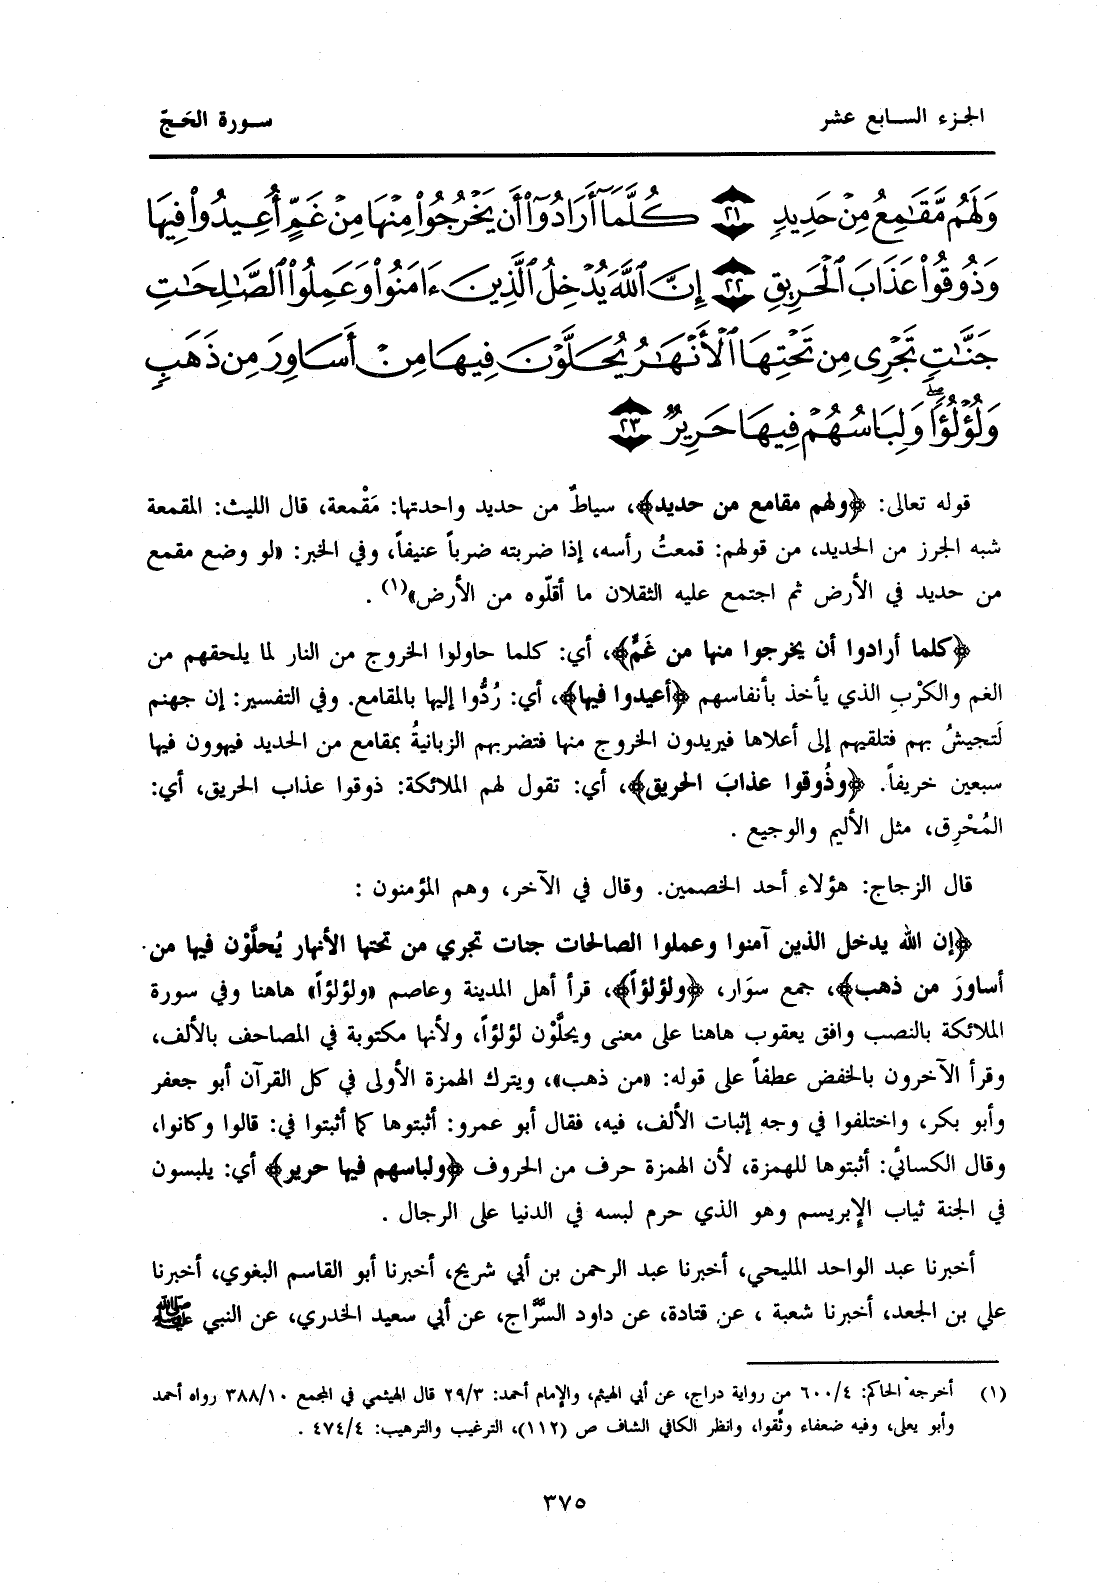 الجزء السابع عشر
سورة الحَجّ
وَلَهُم مَّقَٰمِعُ مِنْ حَدِيدٍ ٢١ كُلَّمَآ أَرَادُوٓا۟ أَن يَخْرُجُوا۟ مِنْهَا مِنْ غَمٍّ أُعِيدُوا۟ فِيهَا
وَذُوقُوا۟ عَذَابَ ٱلْحَرِيقِ ٢٢ إِنَّ ٱللَّهَ يُدْخِلُ ٱلَّذِينَ ءَامَنُوا۟ وَعَمِلُوا۟ ٱلصَّٰلِحَٰتِ
جَنَّٰتٍ تَجْرِى مِن تَحْتِهَا ٱلْأَنْهَٰرُ يُحَلَّوْنَ فِيهَا مِنْ أَسَاوِرَ مِن ذَهَبٍ
وَلُؤْلُؤًا ۖ وَلِبَاسُهُمْ فِيهَا حَرِيرٌ ٢٣
قوله تعالى: ﴿ولهم مقامع من حديد﴾، سياطٌ من حديد واحدتها: مَقْمعة، قال الليث: المقمعة
شبه الجرز من الحديد، من قولهم: قمعتُ رأسه، إذا ضربته ضرباً عنيفاً، وفي الخبر: «لو وضع مقمع
من حديد في الأرض ثم اجتمع عليه الثقلان ما أقلّوه من الأرض»(١) .
﴿كلما أرادوا أن يخرجوا منها من غَمٍّ﴾، أي: كلما حاولوا الخروج من النار لما يلحقهم من
الغم والكرْبِ الذي يأخذ بأنفاسهم ﴿أعيدوا فيها﴾، أي: رُدُّوا إليها بالمقامع. وفي التفسير: إن جهنم
لَتجيشُ بهم فتلقيهم إلى أعلاها فيريدون الخروج منها فتضربهم الزبانيةُ بمقامع من الحديد فيهوون فيها
سبعين خريفاً. ﴿وذُوقوا عذابَ الحريق﴾، أي: تقول لهم الملائكة: ذوقوا عذاب الحريق، أي:
المُحْرِق، مثل الأليم والوجيع .
قال الزجاج: هؤلاء أحد الخصمين. وقال في الآخر، وهم المؤمنون :
﴿إن الله يدخل الذين آمنوا وعملوا الصالحات جنات تجري من تحتها الأنهار يُحلَّوْن فيها من
أساورَ من ذهب﴾، جمع سوَار، ﴿ولؤلؤاً﴾، قرأ أهل المدينة وعاصم «ولؤلؤاً» هاهنا وفي سورة
الملائكة بالنصب وافق يعقوب هاهنا على معنى ويحلَّوْن لؤلؤاً، ولأنها مكتوبة في المصاحف بالألف،
وقرأ الآخرون بالخفض عطفاً على قوله: «من ذهب»، ويترك الهمزة الأولى في كل القرآن أبو جعفر
وأبو بكر، واختلفوا في وجه إثبات الألف، فيه، فقال أبو عمرو: أثبتوها كما أثبتوا في: قالوا وكانوا،
وقال الكسائي: أثبتوها للهمزة، لأن الهمزة حرف من الحروف ﴿ولباسهم فيها حرير﴾ أي: يلبسون
في الجنة ثياب الإبريسم وهو الذي حرم لبسه في الدنيا على الرجال .
أخبرنا عبد الواحد المليحي، أخبرنا عبد الرحمن بن أبي شريح، أخبرنا أبو القاسم البغوي، أخبرنا
علي بن الجعد، أخبرنا شعبة ، عن قتادة، عن داود السَّراج، عن أبي سعيد الخدري، عن النبي ﷺ
(١) أخرجه الحاكم: ٦٠٠/٤ من رواية دراج، عن أبي الهيثم، والإمام أحمد: ٢٩/٣ قال الهيثمي في المجمع ٣٨٨/١٠ رواه أحمد
وأبو يعلى، وفيه ضعفاء وثّقوا، وانظر الكافي الشاف ص (١١٢)، الترغيب والترهيب: ٤٧٤/٤ .
٣٧٥